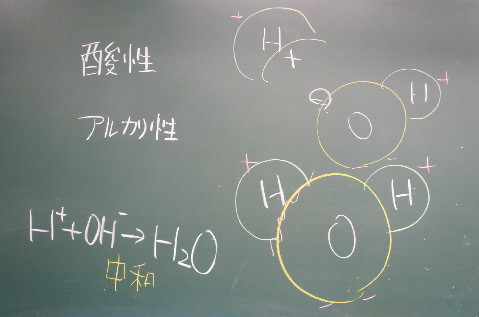 酸性
H+
アルカリ性
O H
H O H
H⁺+OH⁻→H₂O
中和